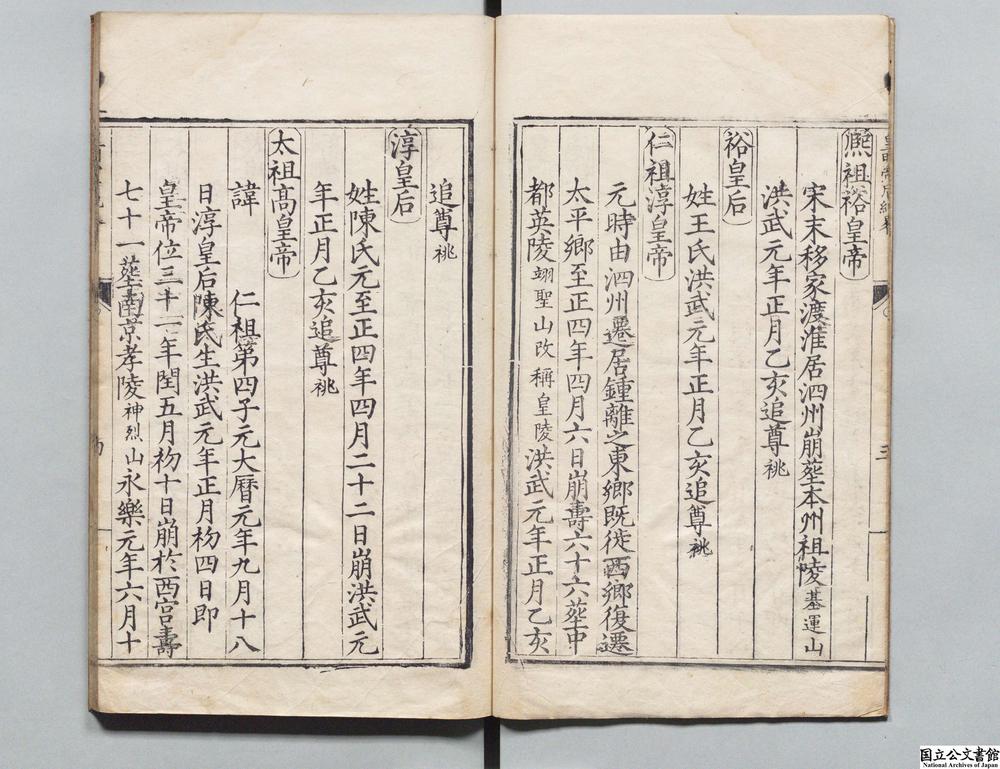 熈祖裕皇帝
宋末移家渡淮居泗州崩塟本州祖陵基運山
洪武元年正月乙亥追尊祧
裕皇后
姓王氏洪武元年正月乙亥追尊祧
仁祖淳皇帝
元時由泗州遷居鍾離之東鄉既徙西鄉復遷
太平鄉至正四年四月六日崩壽六十六塟中
都英陵翊聖山改稱皇陵洪武元年正月乙亥
追尊祧
淳皇后
姓陳氏元至正四年四月二十二日崩洪武元
年正月乙亥追尊祧
太祖高皇帝
諱 仁祖第四子元大曆元年九月十八
日淳皇后陳氏生洪武元年正月初四日即
皇帝位三十一年閏五月初十日崩於西宫壽
七十一塟南京孝陵神烈山永樂元年六月十
三
国立公文書館
National Archives of Japan